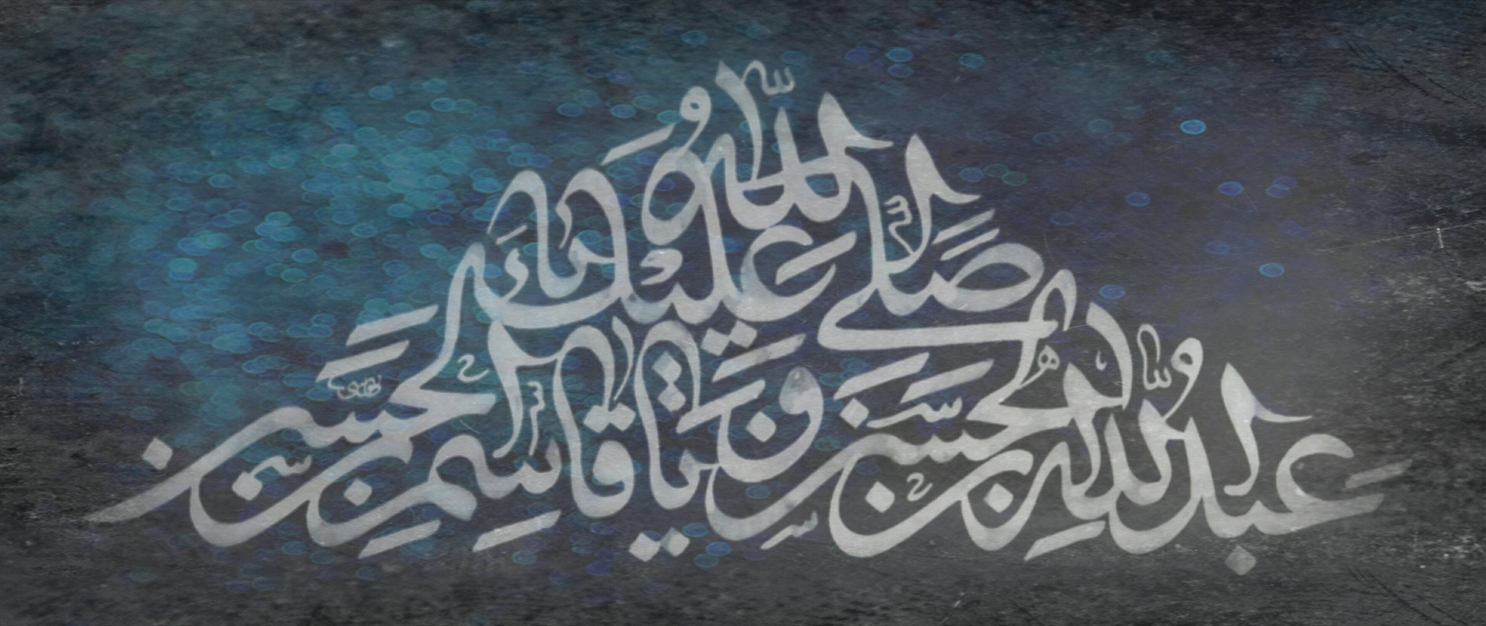 صَلَّى اللّٰهُ عَلَيْكَ يَا
عَبْدَ اللّٰهِ بْنَ الْحَسَنِ وَ يَا قَاسِمِ بْنِ الْحَسَنِ